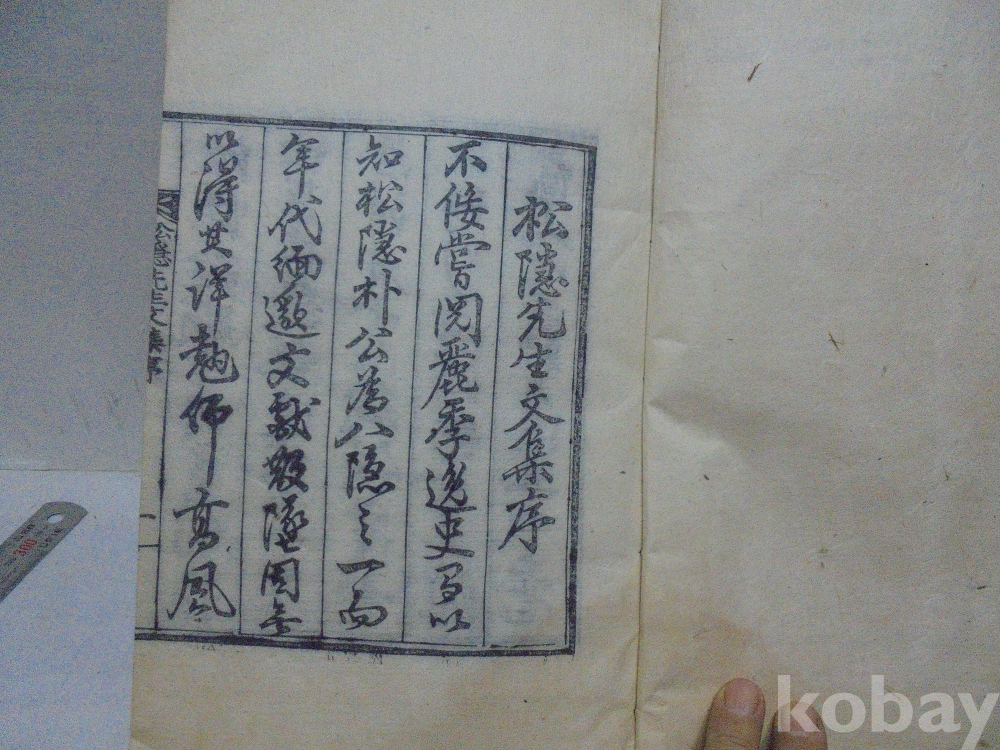 松隱先生文集序
不佞嘗閱麗季逸史以
知松隱朴公爲八隱之一而
年代緬邈文獻散墜無
以得其詳高風
松隱先生文集序
一
300
kobay